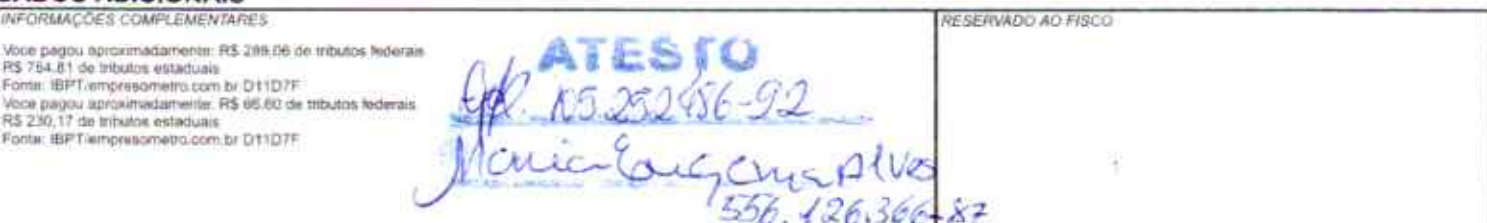 DADOS ADICIONAIS
INFORMAÇÕES COMPLEMENTARES
Voce pagou aproximadamente: R$ 289,06 de tributos federais
R$ 764,81 de tributos estaduais
Fonte: IBPT/empresometro.com.br D11D7F
Voce pagou aproximadamente: R$ 66,60 de tributos federais
R$ 230,17 de tributos estaduais
Fonte: IBPT/empresometro.com.br D11D7F
ATESTO
Maria Alves
556.126.366-87
RESERVADO AO FISCO